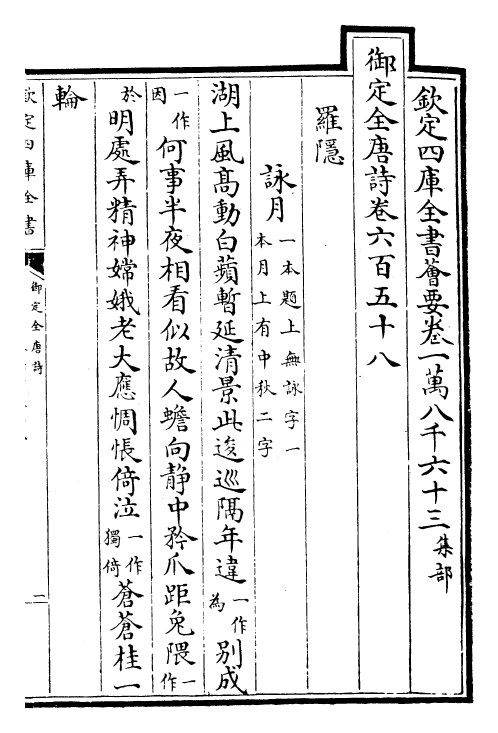 欽定四庫全書薈要卷一萬八千六十三 集部
御定全唐詩卷六百五十八
羅隱
詠月 一本題上無詠字一本月上有中秋二字
湖上風髙動白蘋暫延清景此逡巡隔年違 一作為 别成
因 一作 何事半夜相看似故人蟾向靜中矜爪距兔隈 一作
於 明處弄精神嫦娥老大應惆悵倚泣 一作獨倚 蒼蒼桂一
輪
欽定四庫全書
御定全唐詩